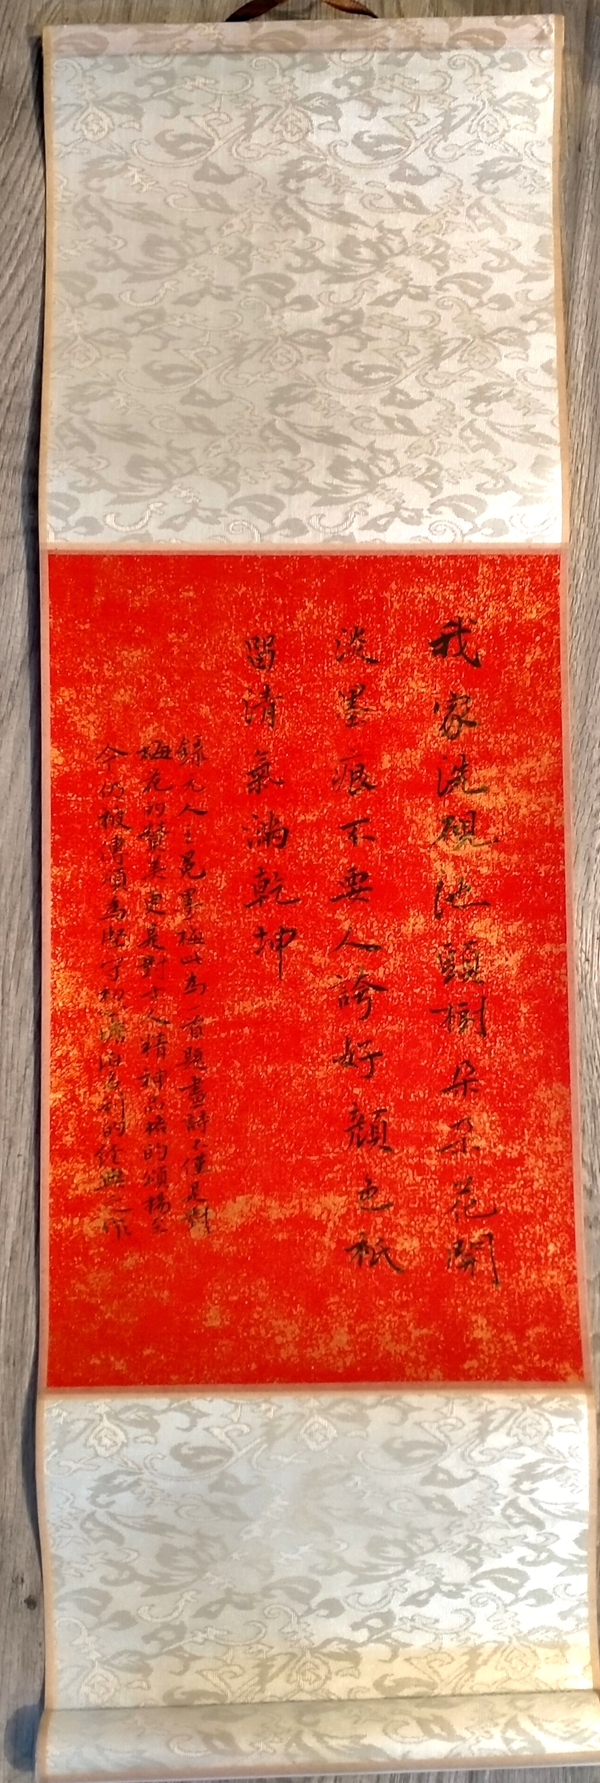 我家洗硯池頭樹朵朵花開
淡墨痕不要人誇好顏色祇
留清氣滿乾坤
錄元人王冕墨梅此為一首題畫詩不僅是對
梅花的贊美更是對士人精神品格的頌揚至
今仍被傳頌為堅守初心澹泊名利的經典之作